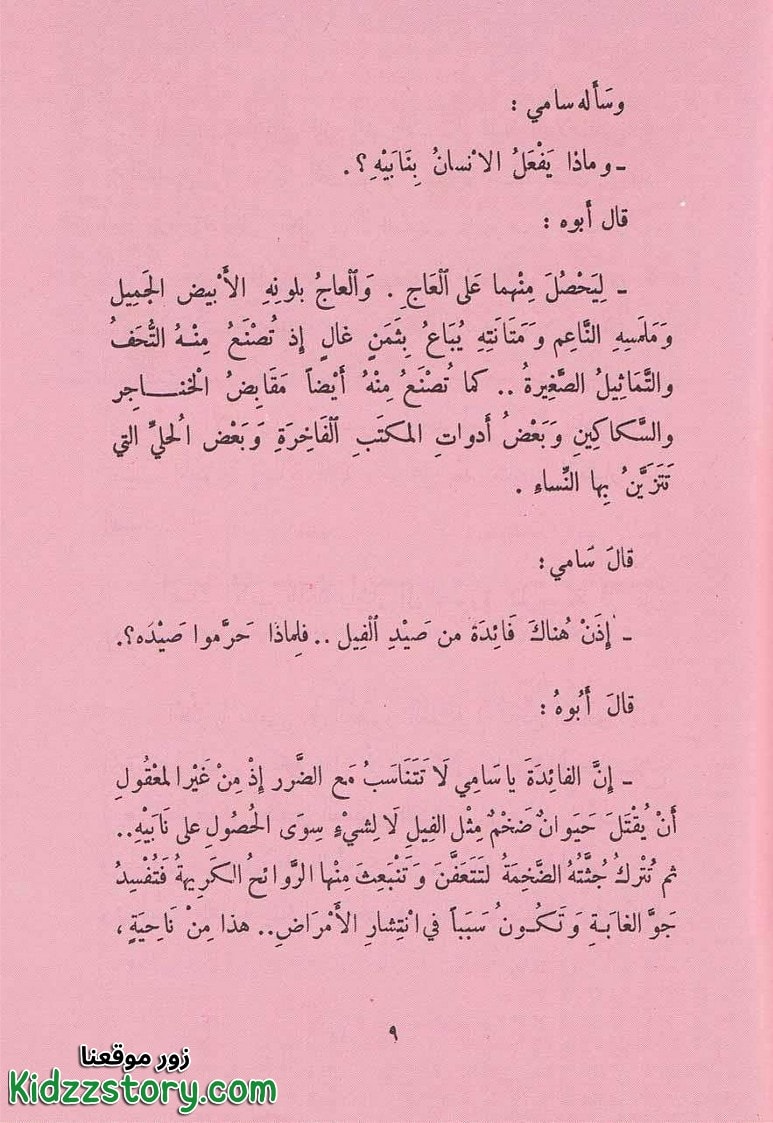 وسَأله سامي :
ـ وماذا يَفْعَلُ الانْسانُ بِنَابَيْهِ ؟ .
قال أَبوه :
ـ لِيَحْصُلَ مِنْهما عَلى ٱلعَاجِ . وَٱلعاجُ بلونِهِ الأَبيض الجَمِيل
وَمَلمَسِهِ النَّاعم وَمَتَانَتِهِ يُبَاعُ بِثَمَنٍ غالٍ إذ تُصْنَعُ مِنْـهُ التُّحَفُ
والتَّمَاثِيلُ الصَّغِيرةُ .. كما تُصْنَعُ مِنْهُ أَيْضاً مَقَابِضُ الْخنـاجِر
والسَّكاكِينِ وَبَعْضُ أَدواتِ المكتَبِ ٱلفَاخِرَةِ وَبَعْض الُحليِّ التي
تَتَزَيَّنُ بِها النِّساءِ .
قالَ سَامي :
ـ إذَنْ هُناكَ فَائِدَة من صَيْدِ ٱلفِيل .. فلِماذا حَرَّموا صَيْدَه ؟ .
قالَ أَبُوهُ :
ـ إنَّ الفائِدَةَ ياسَامي لاَ تَتَنَاسَبُ مَع الضَّرر إذْ مِنْ غَيْرا لمعْقُولِ
أَنْ يُقْتَلَ حَيَوانٌ ضَخْمٌ مِثْل الفِيلِ لاَ لِشيءٍ سِوَى الحُصُولِ على نَابَيْهِ ..
ثم تُتْرك جُثَّتُهُ الضَّخِمَةُ لتَتَعَفَّنَ وَتَنْبَعِثَ مِنْها الرَّوائحُ الكَرِيهةُ فَتُفْسِدُ
جَوَّ الغابَةِ وَتَكُـونُ سَبَباً في انْتِشارِ الأَمْرَاضِ .. هذا مِنْ نَاحِيَةٍ ،
٩
زور موقعنا
Kidzzstory.com